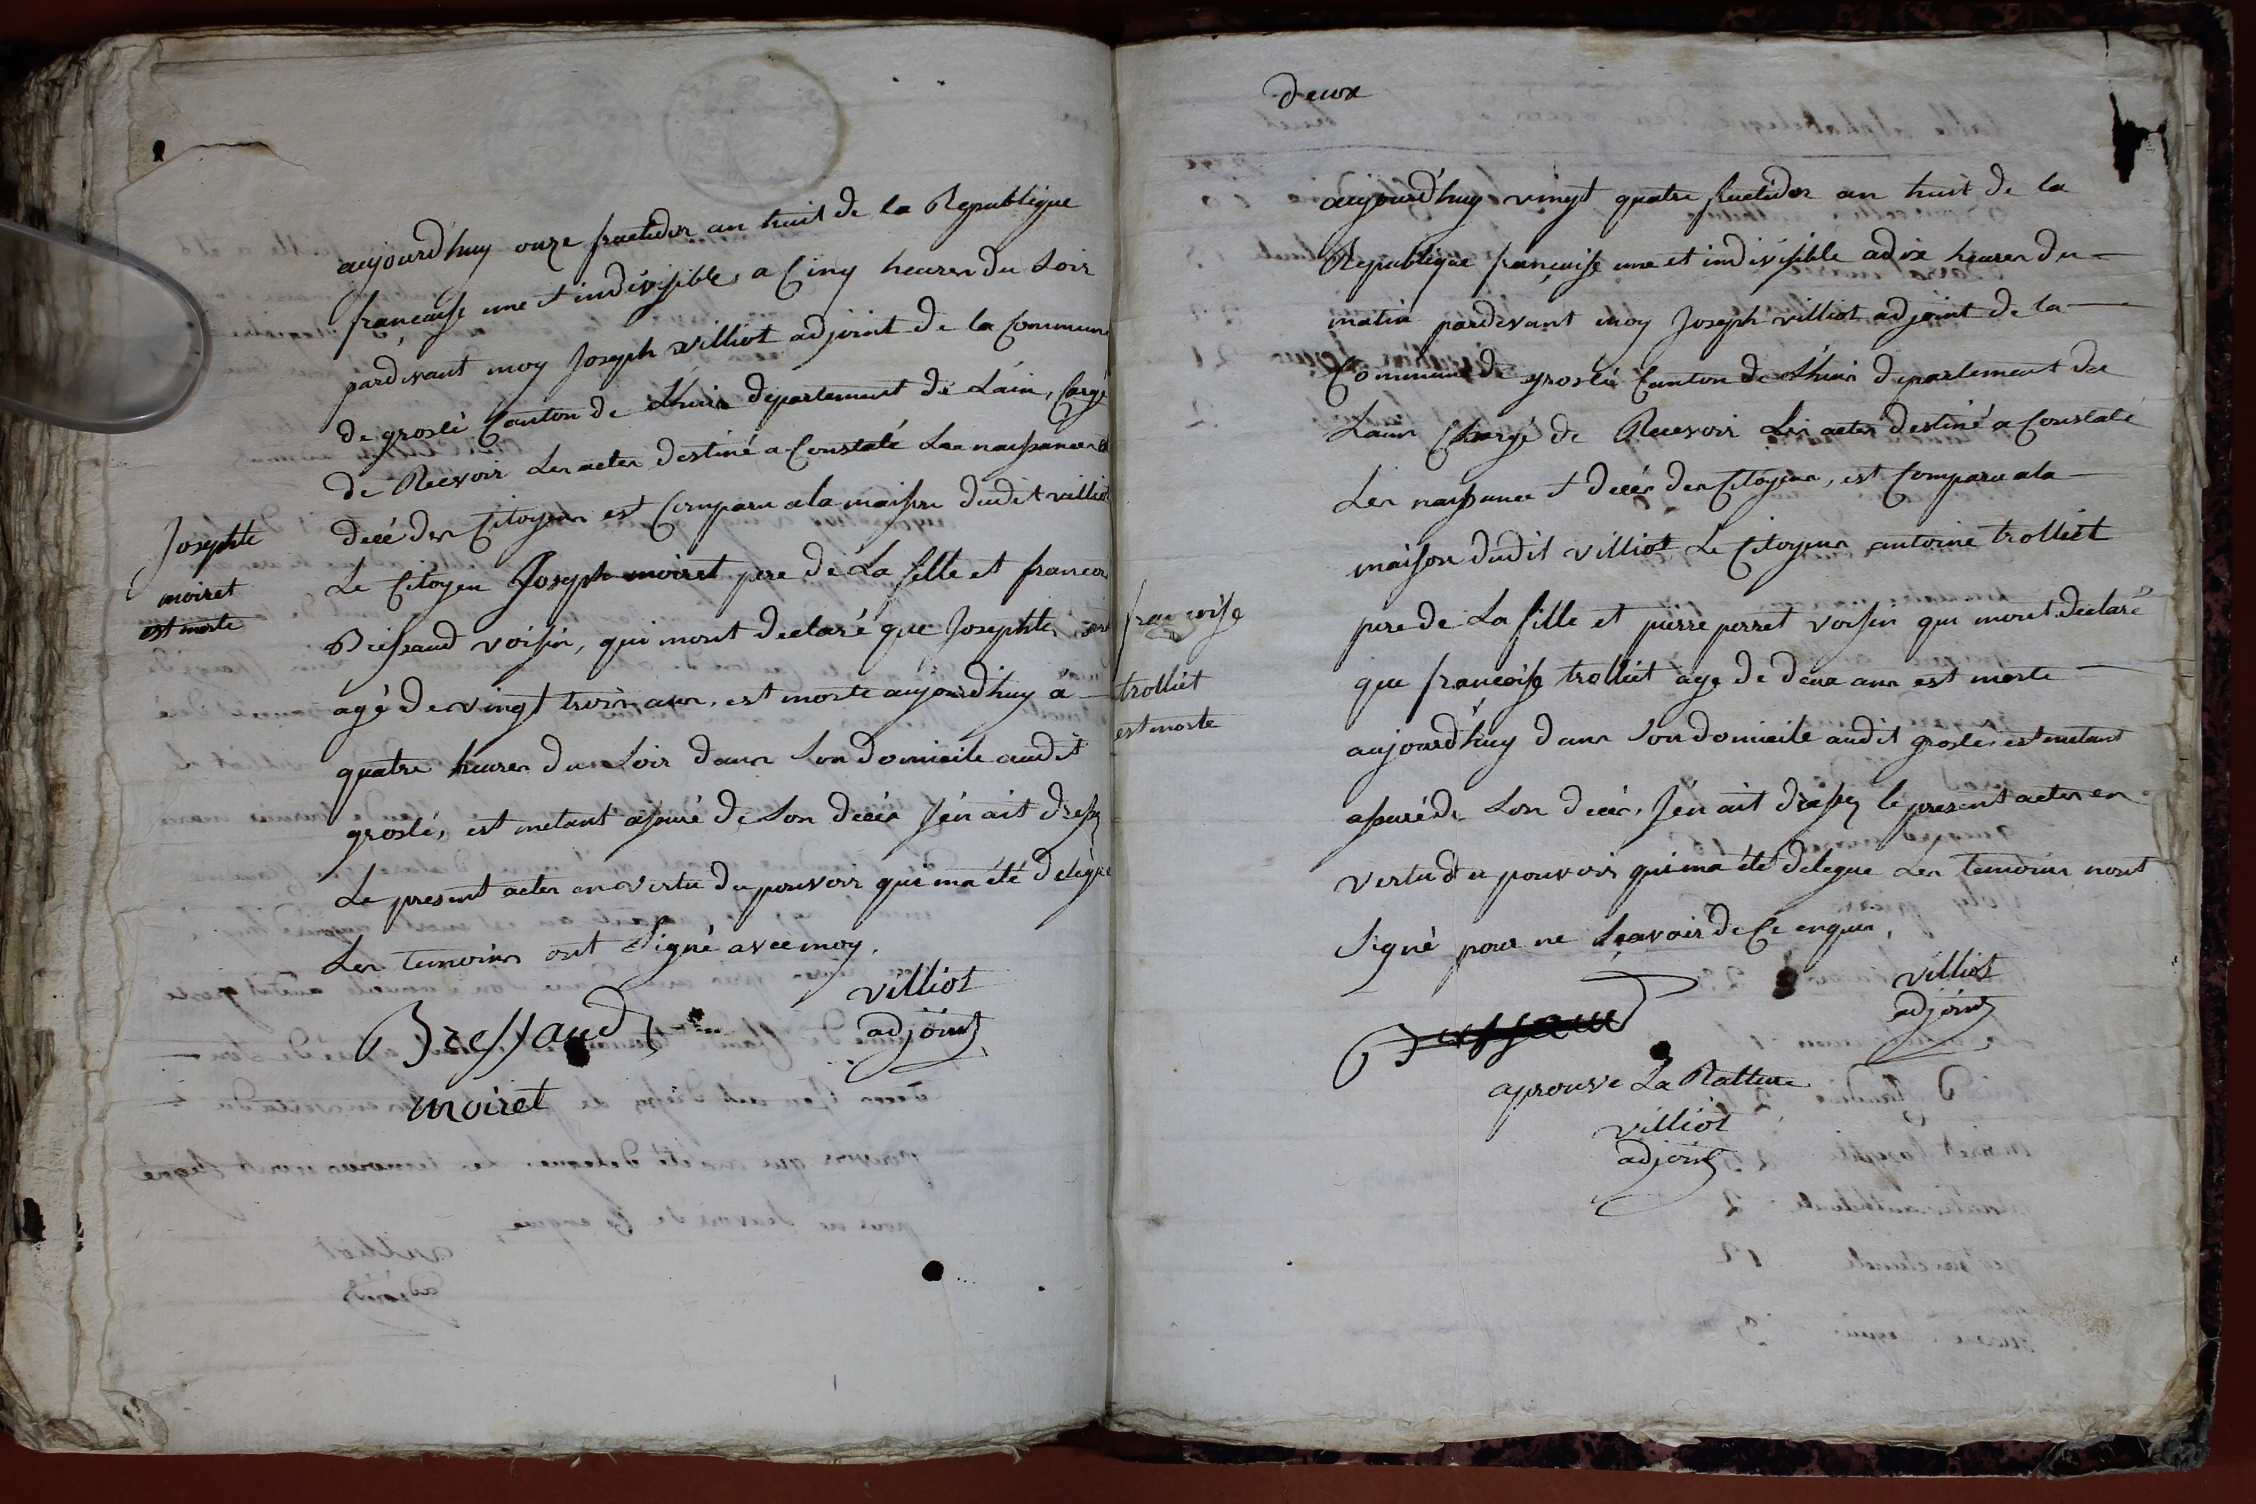 aujourd'huy onze fructidor an huit de la Republique
française une et indivisible, a Cinq heures du Soir
pardevant moy Joseph villiot adjoint de la Commune
de groslé Canton de Lhuis departement de Lain, Cargé
de Recevoir Les actes destiné a Constaté Les naissances et
decé des Citoyens est Comparu a la maison dudit villiot
Le Citoyen Joseph moiret pere de La fille et francois
Bressand voisin, qui mont declaré que Josephte
àgé de vingt trois ans, est morte aujourd'huy a
quatre heures du Soir dans Son domicile audit
groslé, est metant assuré de Son décés J'én ait dressé
Le present actes en vertu du pouvoir qui ma été delegue
Les temoins ont Signé avec moy.
Josephte
moiret
est morte
Bressand
villiot
adjoint
moiret
deux
aujourd'huy vingt quatre fructidor an huit de la
Republique française une et indivisible a dix heures du
matin pardevant moy Joseph villiot adjoint de la
Commune de groslé Canton de Lhuis departement de
Lain Chargé de Recevoir Les actes destiné a Constaté
Les naissance et decés des Citoyens, est Comparu a la
maison dudit villiot Le Citoyens antoine trolliet
pere de La fille et pierre perret voisin qui mont declaré
que françoise trolliet age de deux ans est morte
aujourd'huy dans Son domicile audit groslé est metant
assuré de Son decés, J'én ait dressé le present actes en
vertu du pouvoir qui ma été delegue Les temoins nont
Signé pour ne Sçavoir de Ce enquis,
françoise
trolliet
est morte
villiot
adjoint
Bressand
aprouve La Rature
villiot
adjoint